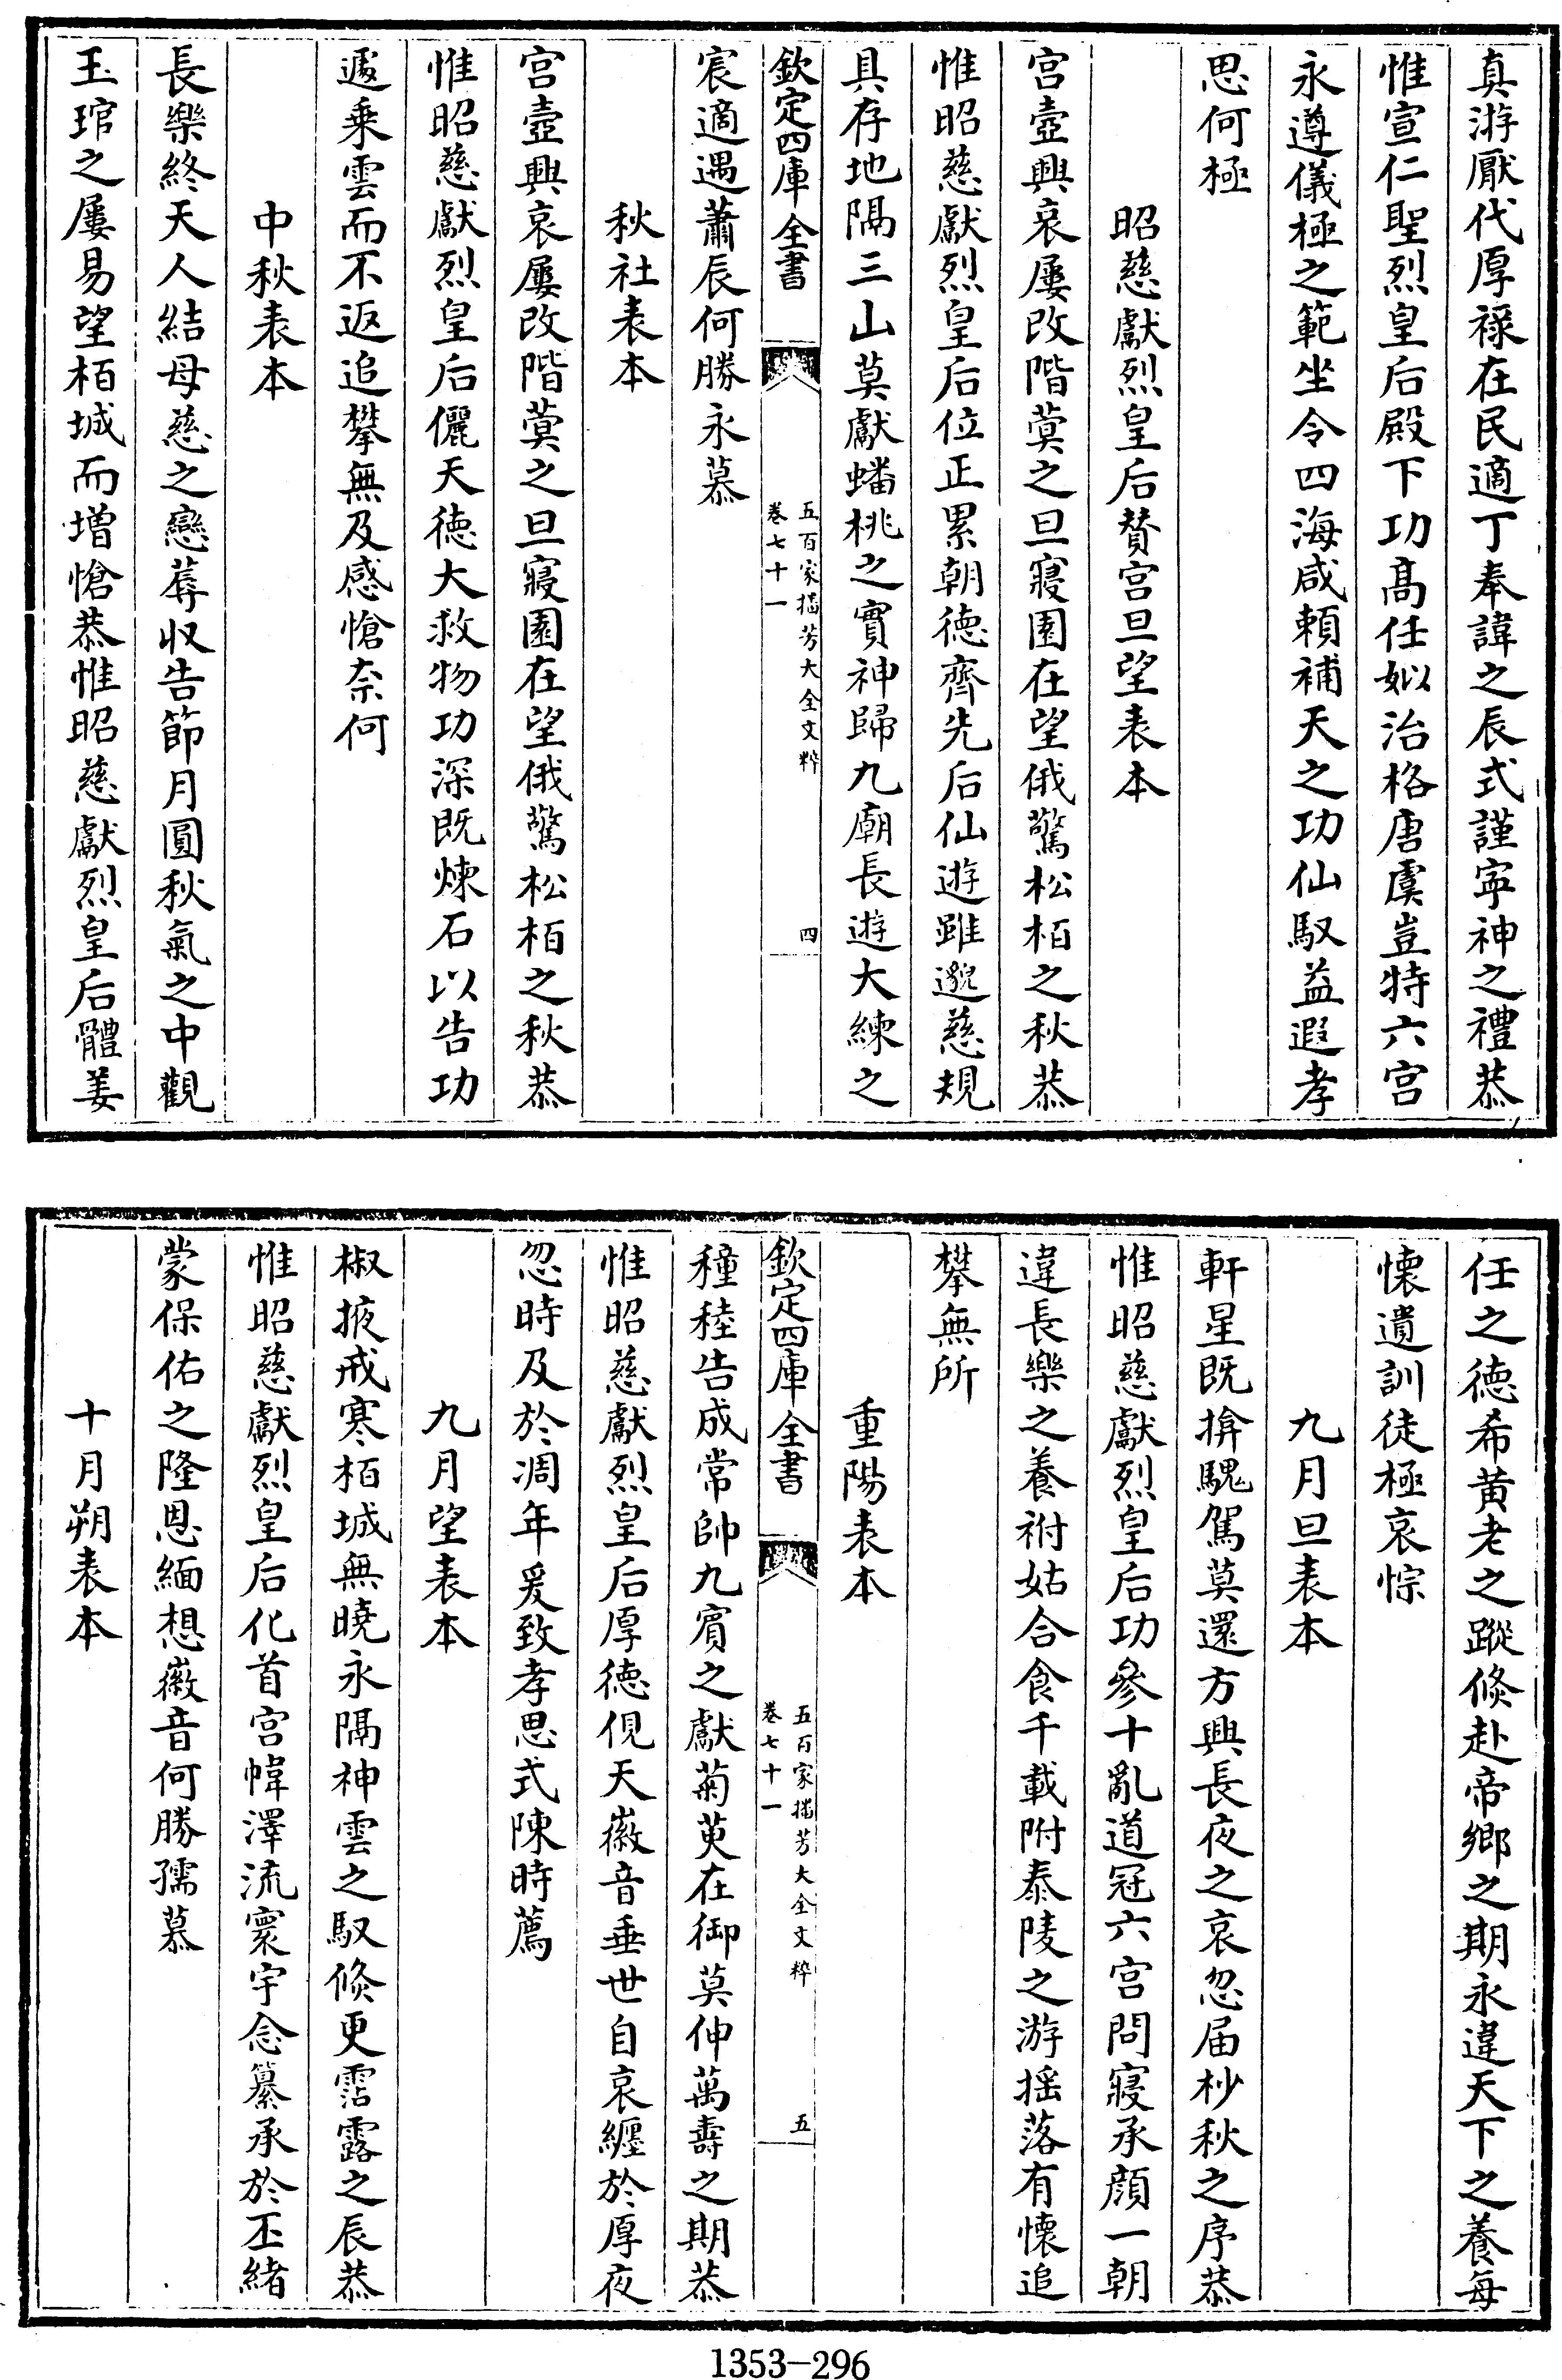 真游厭代厚禄在民適丁奉諱之辰式謹寜神之禮恭
惟宣仁聖烈皇后殿下功髙任姒治格唐虞豈特六宫
永遵儀極之範坐令四海咸頼補天之功仙馭益遐孝
思何極
昭慈獻烈皇后賛宫旦望表本
宫壼興哀屢改階蓂之旦寢園在望俄驚松栢之秋恭
惟昭慈獻烈皇后位正累朝徳齊先后仙逰雖邈慈規
具存地隔三山莫獻蟠桃之實神歸九廟長逰大練之
欽定四庫全書
五百家播芳大全文粹
卷七十一
四
宸適遇蕭辰何勝永慕
秋社表本
宫壼興哀屢改階蓂之旦寢園在望俄驚松栢之秋恭
惟昭慈獻烈皇后儷天徳大救物功深既煉石以告功
遽乗雲而不返追攀無及感愴柰何
中秋表本
長樂終天人結母慈之戀蓐収告節月圓秋氣之中觀
玉琯之屢易望栢城而増愴恭惟昭慈獻烈皇后體姜
任之徳希黄老之蹤倐赴帝鄉之期永違天下之養每
懐遺訓徒極哀悰
九月旦表本
軒星既揜騩駕莫還方興長夜之哀忽届杪秋之序恭
惟昭慈獻烈皇后功參十亂道冠六宫問寢承顔一朝
違長樂之養祔姑合食千載附泰陵之游揺落有懐追
攀無所
重陽表本
欽定四庫全書
五百家播芳大全文粹
卷七十一
五
穜稑告成常帥九賓之獻菊萸在御莫伸萬壽之期恭
惟昭慈獻烈皇后厚徳俔天徽音垂世自哀纒於厚夜
忽時及於凋年爰致孝思式陳時薦
九月望表本
椒掖戒寒栢城無曉永隔神雲之馭倐更霑露之辰恭
惟昭慈獻烈皇后化首宫幃澤流寰宇念纂承於丕緒
蒙保佑之隆恩緬想徽音何勝孺慕
十月朔表本
1353-296